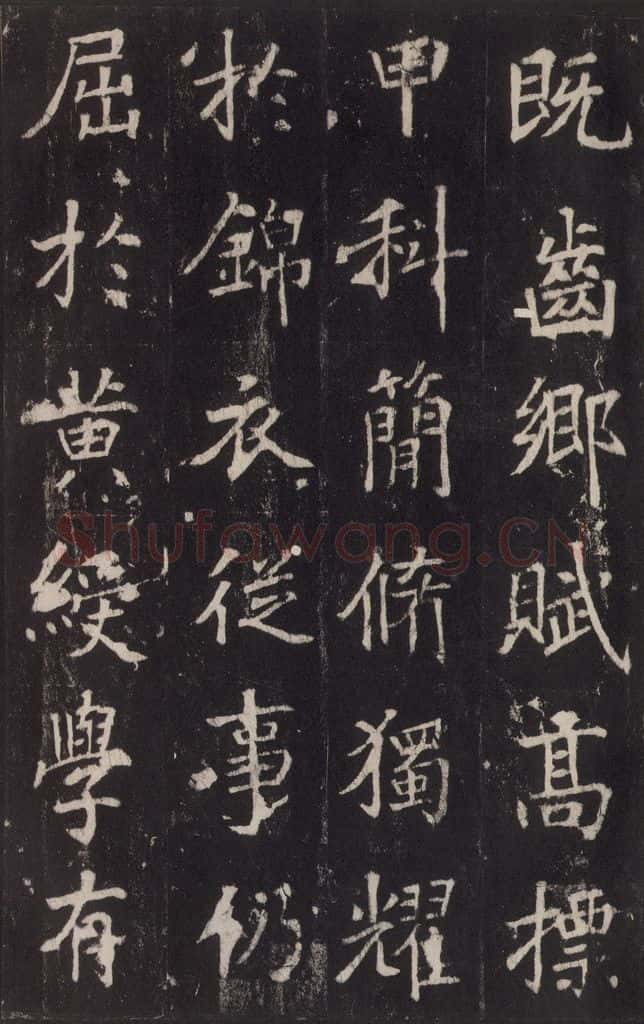 既齒鄉賦髙標
甲科簡脩獨耀
於錦衣從事仍
屈於黃綬學有
Shufawang.CN